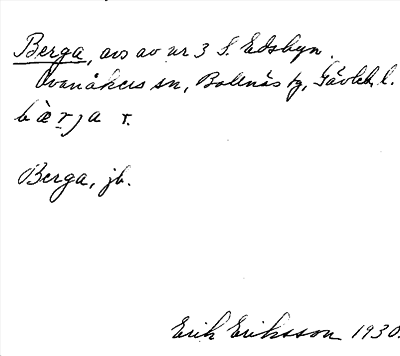 Berga, avs av nr 3 S. Edsbyn.
Ovanåkers sn, Bollnäs tg, Gävleb. l.
bæ̀rja r.
Berga, jb.
Erik Eriksson 1930.